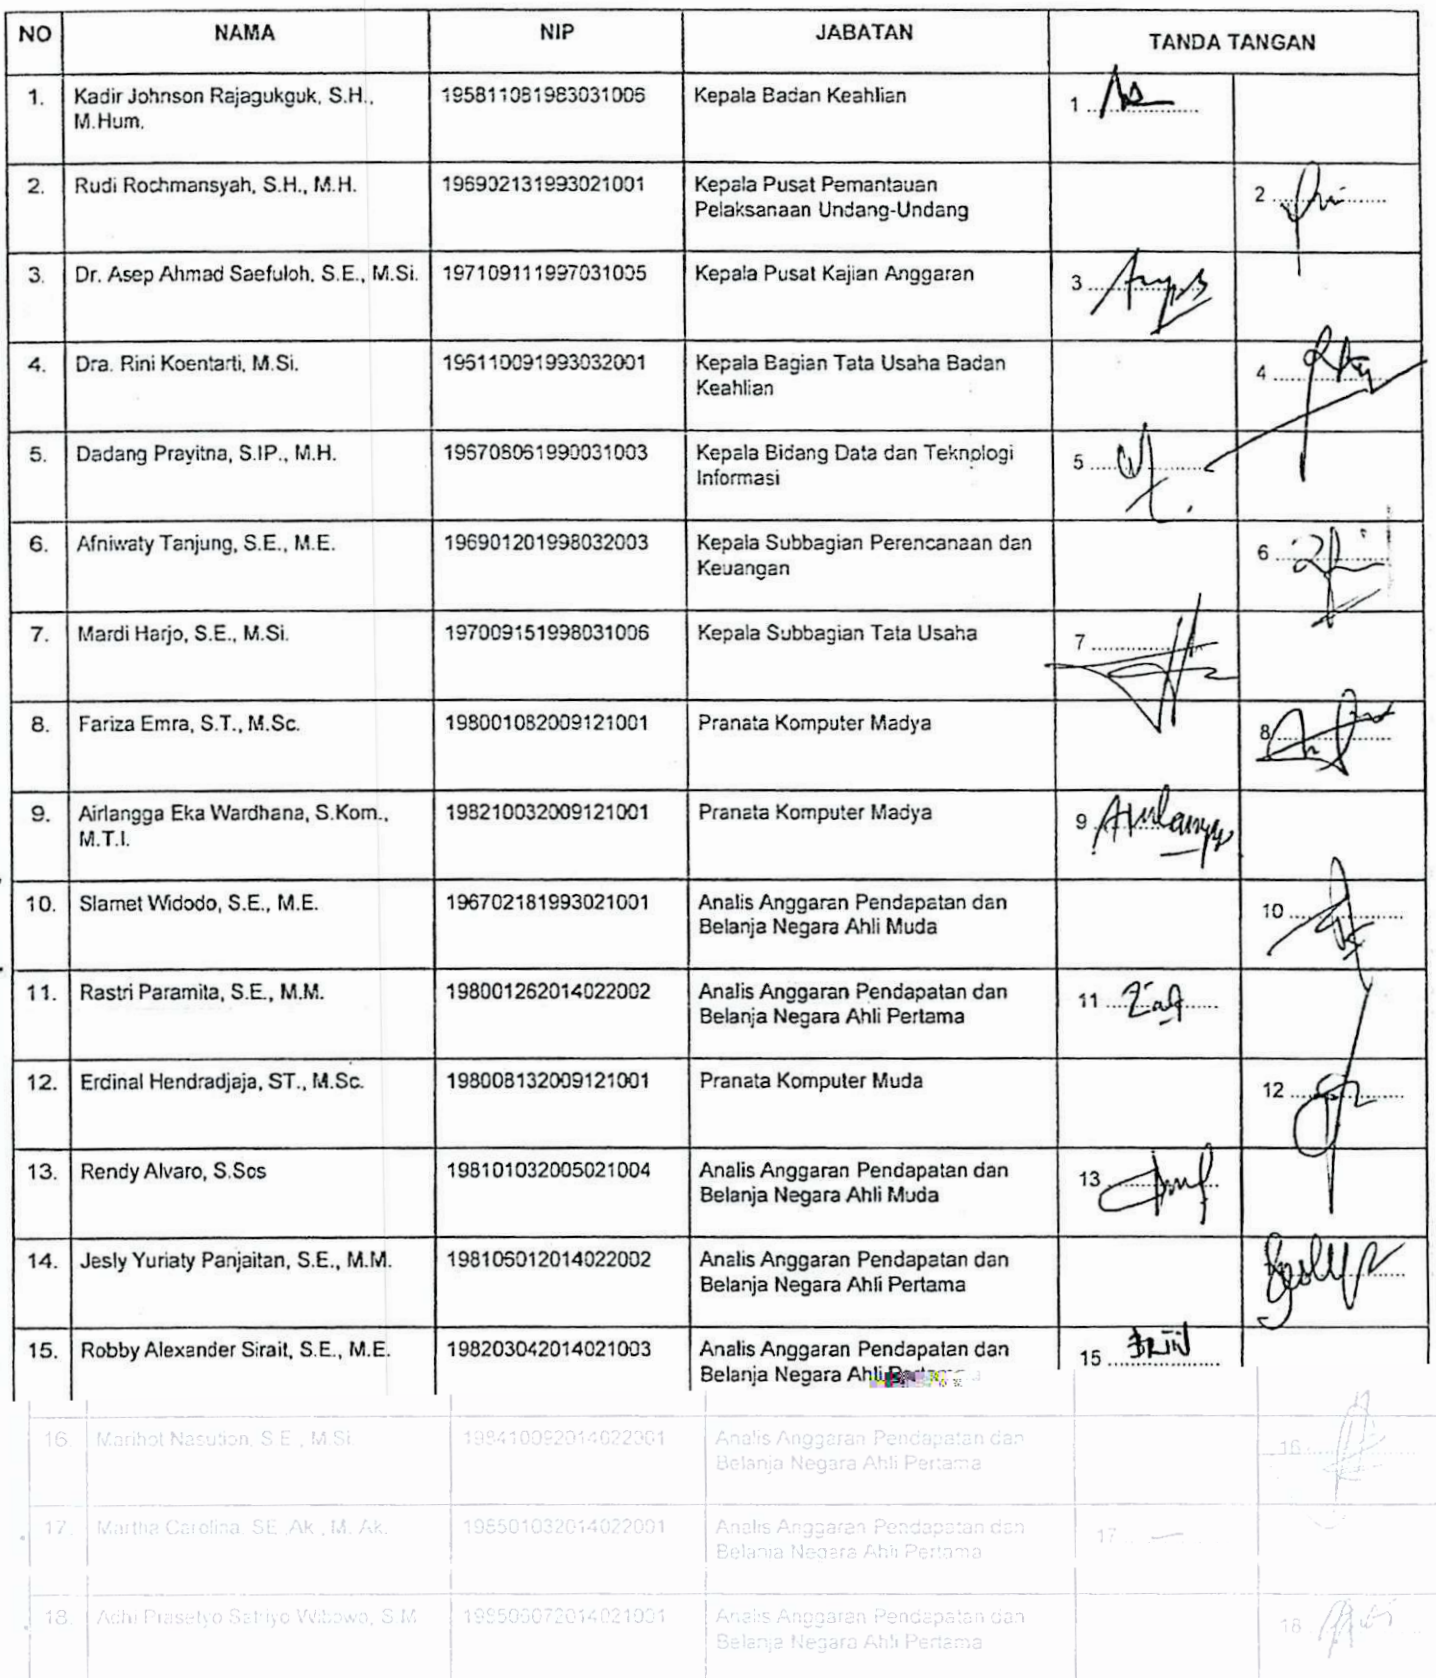 NO NAMA NIP JABATAN TANDA TANGAN
1. Kadir Johnson Rajagukguk, S.H., 195811081983031006 Kepala Badan Keahlian 1
M.Hum.
2. Rudi Rochmansyah, S.H., M.H. 196902131993021001 Kepala Pusat Pemantauan 2
Pelaksanaan Undang-Undang
3. Dr. Asep Ahmad Saefuloh, S.E., M.Si. 197109111997031005 Kepala Pusat Kajian Anggaran 3
4. Dra. Rini Koentarti, M.Si. 196110091993032001 Kepala Bagian Tata Usaha Badan 4
Keahlian
5. Dadang Prayitna, S.IP., M.H. 196708061990031003 Kepala Bidang Data dan Teknologi 5
Informasi
6. Afniwaty Tanjung, S.E., M.E. 196901201998032003 Kepala Subbagian Perencanaan dan 6
Keuangan
7. Mardi Harjo, S.E., M.Si. 197009151998031006 Kepala Subbagian Tata Usaha 7
8. Fariza Emra, S.T., M.Sc. 198001082009121001 Pranata Komputer Madya 8
9. Airlangga Eka Wardhana, S.Kom., 198210032009121001 Pranata Komputer Madya 9
M.T.I.
10. Slamet Widodo, S.E., M.E. 196702181993021001 Analis Anggaran Pendapatan dan 10
Belanja Negara Ahli Muda
11. Rastri Paramita, S.E., M.M. 198001262014022002 Analis Anggaran Pendapatan dan 11
Belanja Negara Ahli Pertama
12. Erdinal Hendradjaja, ST., M.Sc. 198008132009121001 Pranata Komputer Muda 12
13. Rendy Alvaro, S.Sos 198101032005021004 Analis Anggaran Pendapatan dan 13
Belanja Negara Ahli Muda
14. Jesly Yuriaty Panjaitan, S.E., M.M. 198106012014022002 Analis Anggaran Pendapatan dan
Belanja Negara Ahli Pertama
15. Robby Alexander Sirait, S.E., M.E. 198203042014021003 Analis Anggaran Pendapatan dan 15
Belanja Negara Ahli
16 Marihot Nasution, S.E., M.Si. 198410092014022001 Analis Anggaran Pendapatan dan 16
Belanja Negara Ahli Pertama
17. Martha Carolina, SE.,Ak., M. Ak. 198501032014022001 Analis Anggaran Pendapatan dan 17
Belanja Negara Ahli Pertama
18. Adhi Prasetyo Satriyo Wibowo, S.M. 198506072014021001 Analis Anggaran Pendapatan dan 18
Belanja Negara Ahli Pertama